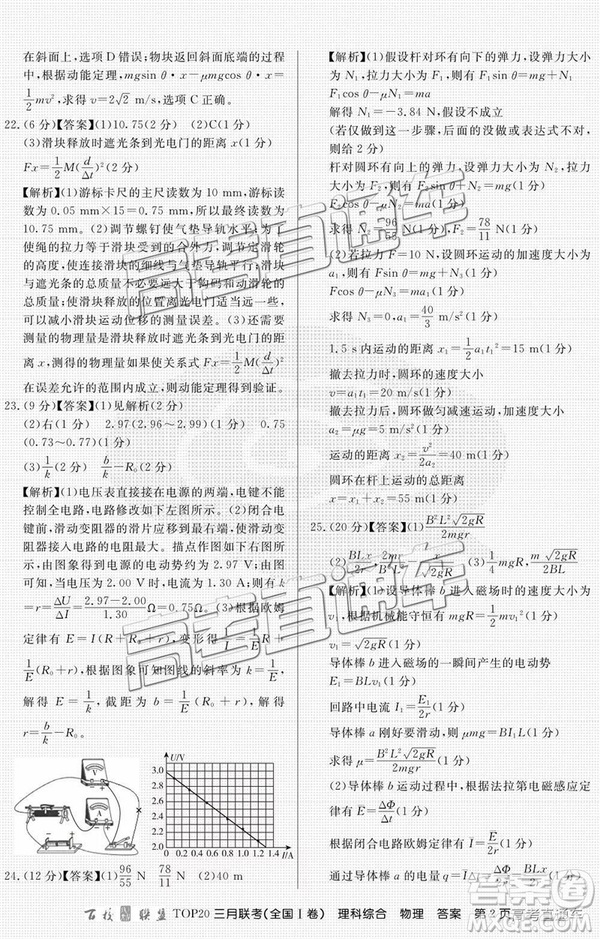 在斜面上,选项 D 错误;物块返回斜面底端的过程
中,根据动能定理,mgsin θ·x-μmgcos θ·x=
1/2 mv²,求得 v=2√2 m/s,选项 C 正确。
22.(6 分)【答案】(1)10.75(2 分) (2)C(1 分)
(3)滑块释放时遮光条到光电门的距离(1 分)
Fx=1/2 M(d/Δt)²(2 分)
【解析】(1)游标卡尺的主尺读数为 10 mm,游标尺的
读数为 0.05 mm×15=0.75 mm,所以最终读数为
10.75 mm。(2)调节螺钉使气垫导轨水平,为了
使绳的拉力等于滑块受到的合外力,应调节定滑轮
的高度,使连接滑块的细线与气垫导轨平行;滑块
与遮光条的总质量不必要远大于钩码和动滑轮的
总质量;使滑块释放的位置离光电门适当远一些,可
以减小滑块运动位移的测量误差。(3)还需要
测量的物理量为滑块释放时遮光条到光电门的距
离 x,测得的物理量如果使关系式 Fx=1/2 M(d/Δt)²
在误差允许的范围内成立,则动能定理得到验证。
23.(9 分)【答案】(1)见解析(2 分)
(2)右(1 分) 2.97(2.96~2.99)(1 分) 0.75
(0.73~0.77)(1 分)
(3)1/k(2 分) b/k-R₀(2 分)
【解析】(1)电压表直接接在电源的两端,电键不能
控制全电路,电路修改如下左图所示。(2)闭合电
键前,滑动变阻器的滑片应移到最右端,使滑动变
阻器接入电路的电阻最大。描点作图如下右图所
示,由图可知,电源的电动势约为 2.97 V;由图
可知,当电压为 2.00 V 时,电流为 1.30 A,则内阻
为 r=ΔU/ΔI=(2.97-2.00)/1.30 Ω=0.75 Ω。(3)根据欧姆
定律有 E=I(R+R₀+r),得到 1/I=1/E R+
1/E(R₀+r),图象斜率为 k,则 k=1/E,
解得 E=1/k,截距为 b=1/E(R₀+r),解得
r=b/k-R₀。
U/N
3.0
2.8
2.6
2.4
2.2
2.0
0 0.2 0.4 0.6 0.8 1.0 1.2 1.4 I/A
V
A
24.(12 分)【答案】(1)96/55 N 78/11 N (2)40 m
【解析】(1)假设杆对环有向下的弹力,弹力大小
为 N₁,拉力大小为 F₁,则有 F₁sin θ=mg+N₁
F₁cos θ-μN₁=ma
解得 N₁=-3.84 N,假设不成立
(若仅做到这一步骤,后续计算错误或没有做对,
给 2 分)
杆对圆环有向上的弹力,设弹力大小为 N₂,拉力大
小为 F₂,则有 F₂sin θ+N₂=mg(1 分)
F₂cos θ-μN₂=ma(1 分)
求得 N₂=96/55 N,F₂=78/11 N(2 分)
(2)若拉力 F=10 N,设圆环运动的加速度大小为
a₁,则有 Fsin θ=mg+N₃(1 分)
Fcos θ-μN₃=ma₁(1 分)
求得 a₁=40/3 m/s²(1 分)
1.5 s 内运动的距离 x₁=1/2 a₁t₁²=15 m(1 分)
撤去拉力时,圆环的速度大小
v=a₁t₁=20 m/s(1 分)
撤去拉力后,圆环做匀减速运动,加速度大小
a₂=μg=5 m/s²(1 分)
运动的距离 x₂=v²/2a₂=40 m(1 分)
圆环在杆上运动的总距离
x=x₁+x₂=55 m(1 分)
25.(20 分)【答案】(1)B²L²√2gR/2mgr
【解析】(1)设导体棒 b 进入磁场时的速度大小为
v₁,根据机械能守恒有 mgR=1/2 mv₁²(1 分)
v₁=√2gR(1 分)
导体棒 b 进入磁场的一瞬间产生的电动势
E₁=BLv₁(1 分)
回路中电流 I₁=E₁/2r(1 分)
导体棒 a 刚好要滑动,则 μmg=BI₁L(1 分)
求得 μ=B²L²√2gR/2mgr(1 分)
(2)导体棒 b 运动过程中,根据法拉第电磁感应定
律有 E=ΔΦ/Δt(1 分)
百校联盟 TOP20 三月联考(全国Ⅰ卷) 理科综合 物理 答案 第 2 页
高考直通车